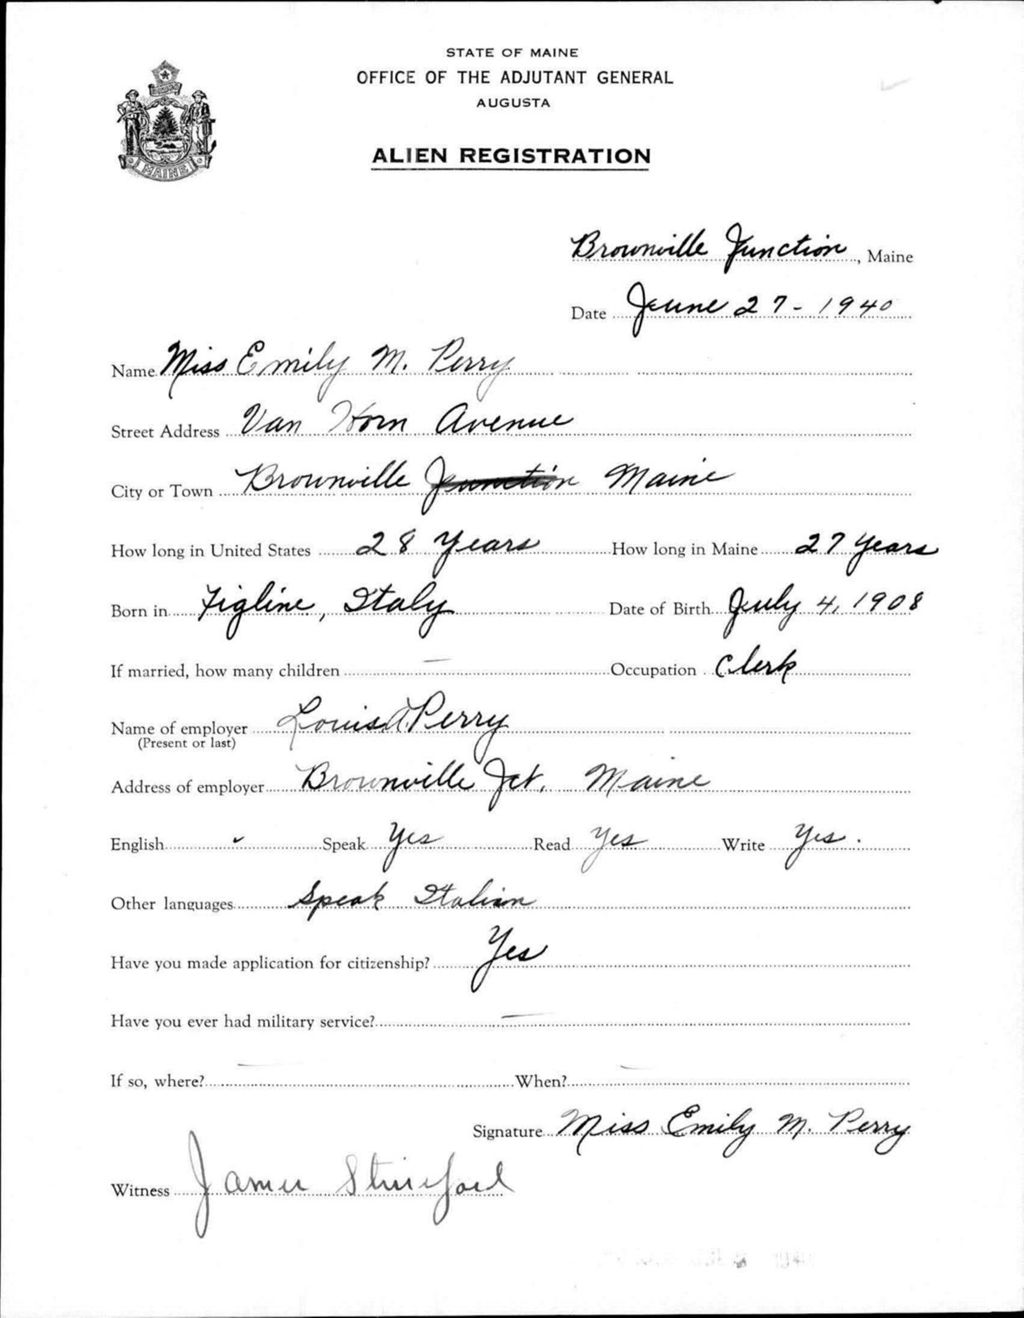 STATE OF MAINE
OFFICE OF THE ADJUTANT GENERAL
AUGUSTA
ALIEN REGISTRATION
MAINE
Brownville Junction, Maine
Date June 27 - 1940
Name Miss Emily M. Perry
Street Address Van Horn Avenue
City or Town Brownville Junction Maine
How long in United States 28 Years How long in Maine 27 years
Born in Figline, Italy Date of Birth July 4, 1908
If married, how many children — Occupation Clerk
Name of employer Louis A. Perry
(Present or last)
Address of employer Brownville Jct. Maine
English Speak Yes Read Yes Write Yes.
Other languages Speak Italian
Have you made application for citizenship? Yes
Have you ever had military service? —
If so, where? — When? —
Signature Miss Emily M. Perry
Witness James